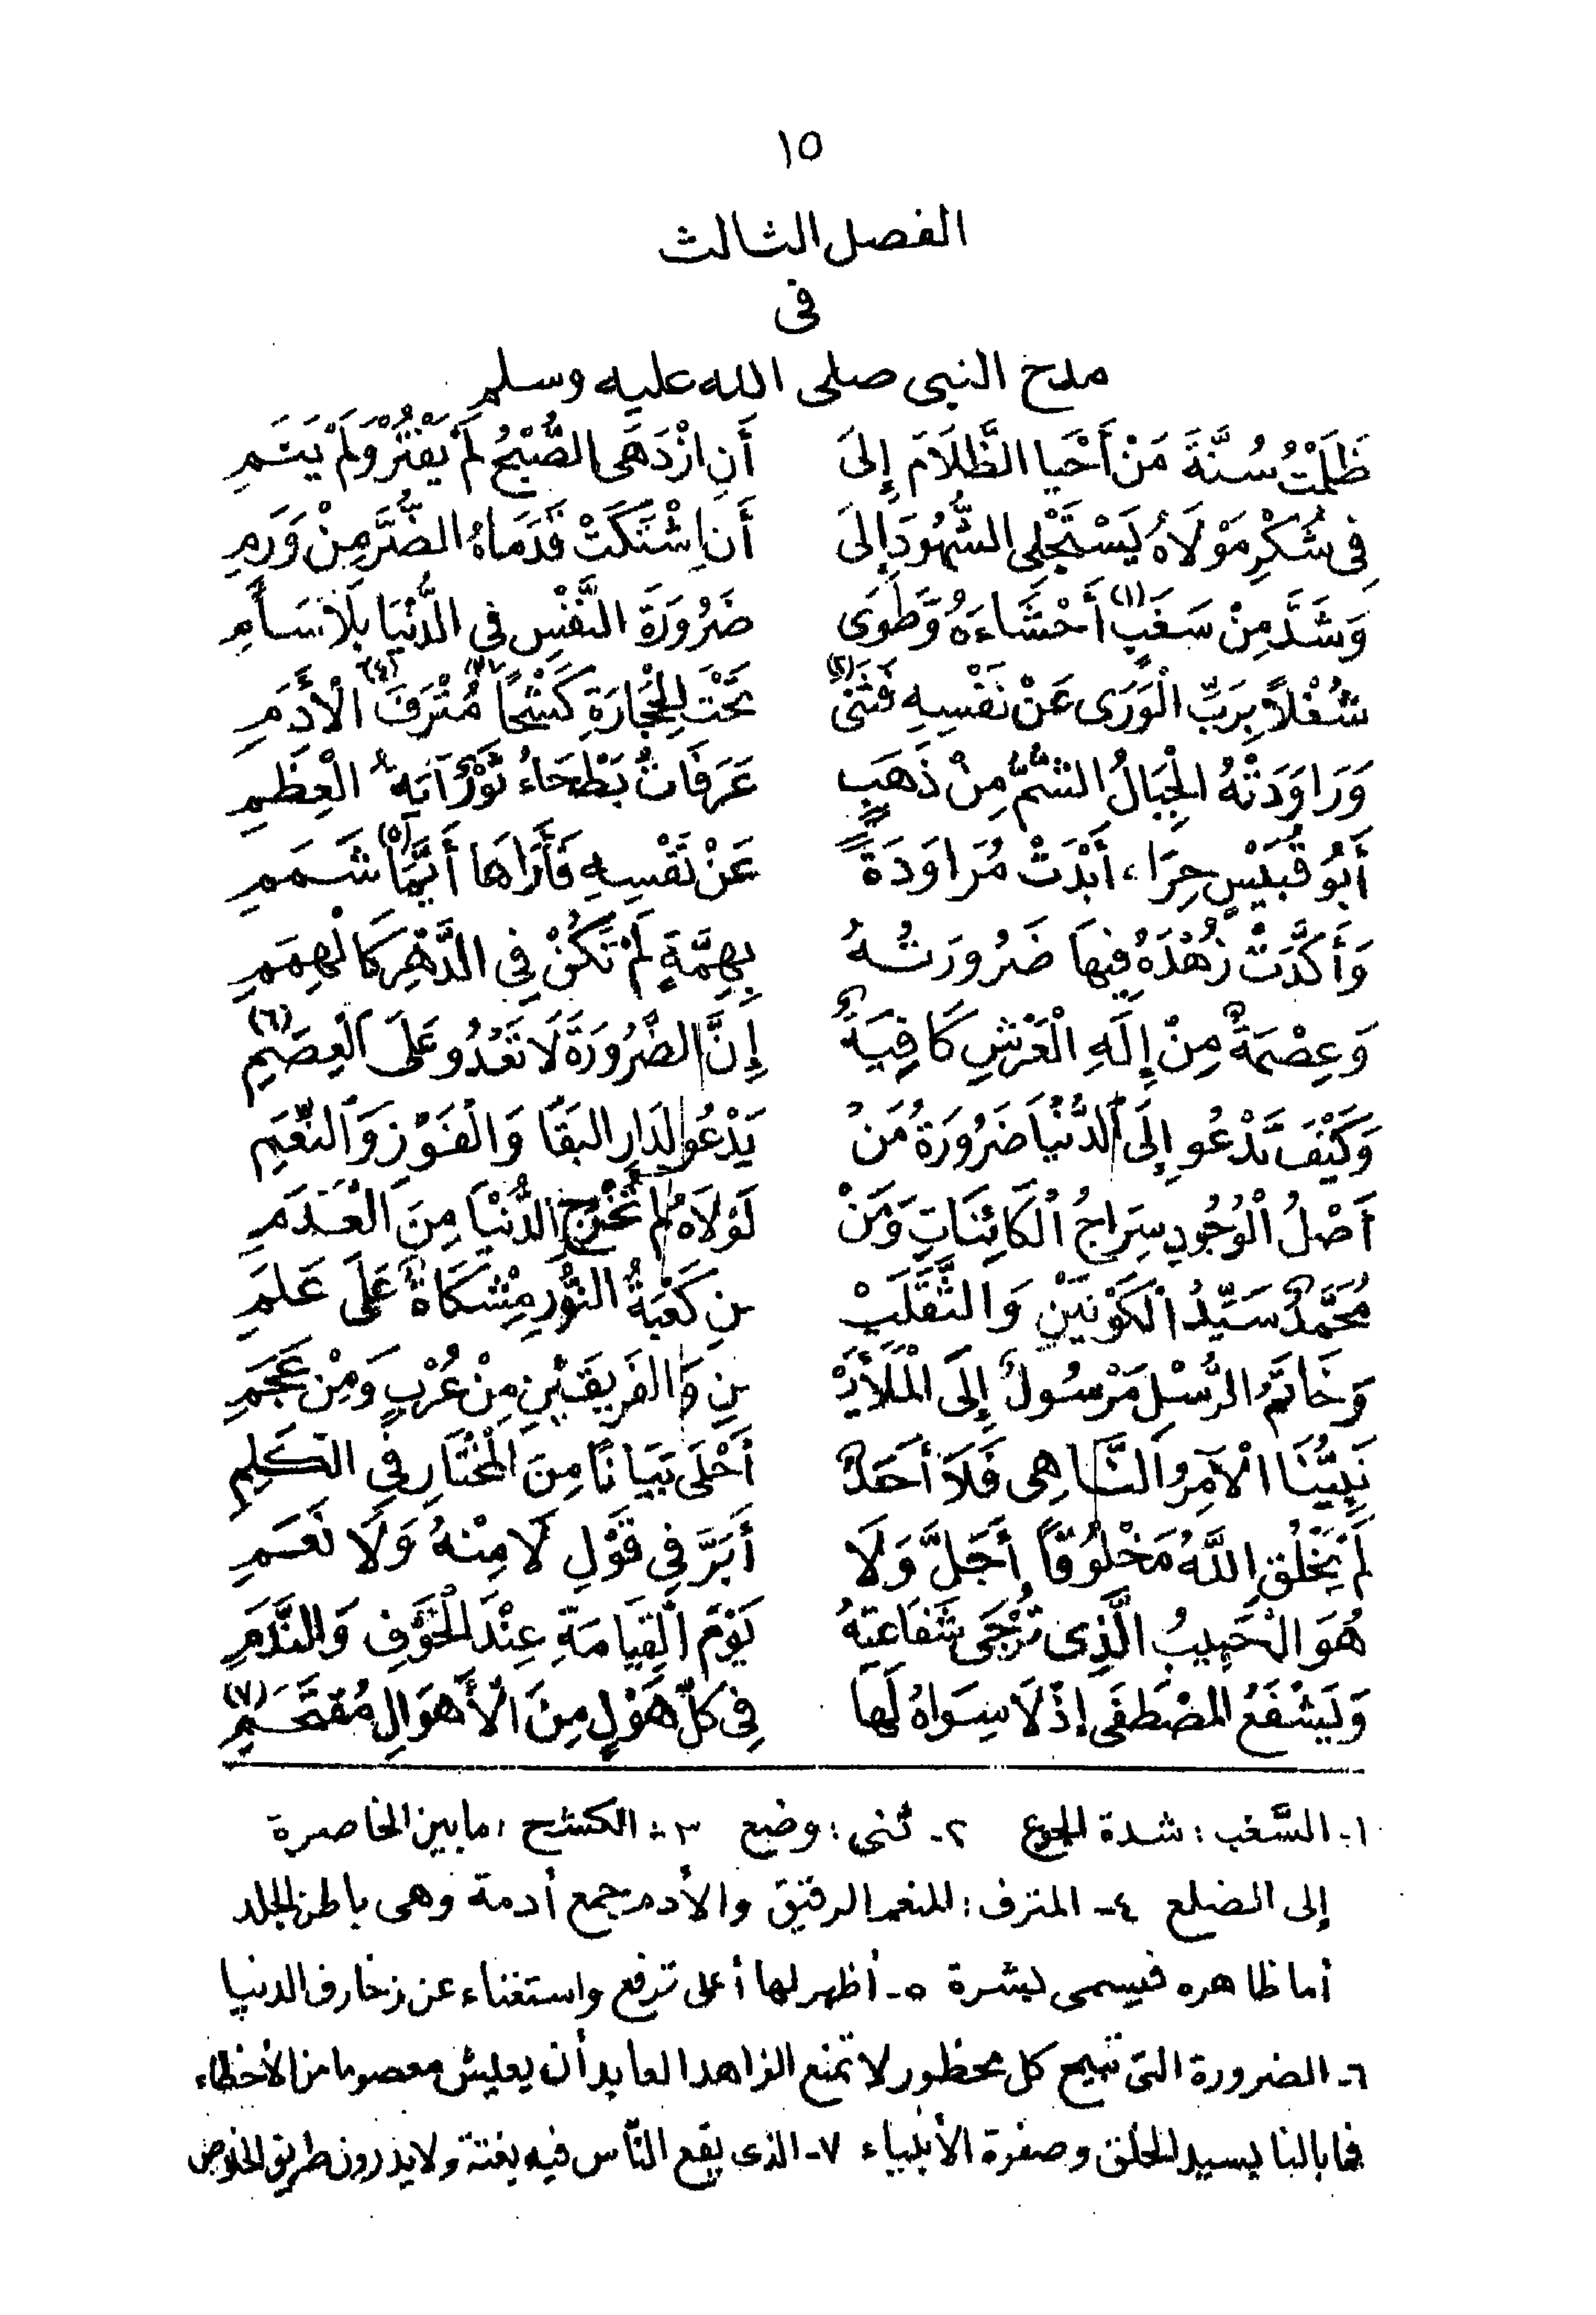 ١٥
الفصل الثالث
فى
مدح النبى صلى الله عليه وسلم
ظَلَمْتُ سُنَّةَ مَنْ أَحْيَا الظَّلَامَ إِلَى أَنِ ازْدَهَى الصُّبْحُ لَمْ يَفْتُرْ وَلَمْ يَنَمِ
فِى شُكْرِ مَوْلَاهُ يَسْتَجْلِى الشُّهُودَ إِلَى أَنِ اشْتَكَتْ قَدَمَاهُ الضُّرَّ مِنْ وَرَمِ
وَشَدَّ مِنْ سَغَبٍ (١) أَحْشَاءَهُ وَطَوَى ضَرُورَةَ النَّفْسِ فِى الدُّنْيَا بِلَا سَأَمِ
شُغْلاً بِرَبِّ الْوَرَى عَنْ نَفْسِهِ فَثَنَى (٢) تَحْتَ الْحِجَارَةِ كَشْحًا (٣) مُتْرَفَ (٤) الْأَدَمِ
وَرَاوَدَتْهُ الْجِبَالُ الشُّمُّ مِنْ ذَهَبٍ عَرَفَاتٌ بَطْحَاءُ العِظَمِ
أَبُو قُبَيْسٍ حِرَاءَ أَبْدَتْ مُرَاوَدَةً عَنْ نَفْسِهِ فَأَرَاهَا أَيَّمَا (٥) شَمَمِ
وَأَكَّدَتْ زُهْدَهُ فِيهَا ضَرُورَتُهُ بِهِمَّةٍ لَمْ تَكُنْ فِى الدَّهْرِ كَالْهِمَمِ
وَعِصْمَةٌ مِنْ إِلَهِ الْعَرْشِ كَافِيَةٌ إِنَّ الضَّرُورَةَ لَا تَعْدُو عَلَى الْعِصَمِ (٦)
وَكَيْفَ تَدْعُو إِلَى الدُّنْيَا ضَرُورَةُ مَنْ يَدْعُو لِدَارِ البَقَا وَالْفَوْزِ وَالنِّعَمِ
أَصْلُ الْوُجُودِ سِرَاجُ الْكَائِنَاتِ وَمَنْ لَوْلَاهُ لَمْ تَخْرُجِ الدُّنْيَا مِنَ الْعَدَمِ
مُحَمَّدٌ سَيِّدُ الْكَوْنَيْنِ وَالثَّقَلَيْـ ـنِ كَعْبَةُ النُّورِ مِشْكَاةٌ عَلَى عَلَمِ
وَخَاتَمُ الرُّسْلِ مَرْسُولٌ إِلَى الْمَلَأَيْـ ـنِ وَالفَرِيقَيْنِ مِنْ عُرْبٍ وَمِنْ عَجَمِ
نَبِيُّنَا الْآمِرُ النَّاهِى فَلَا أَحَدٌ أَحْلَى بَيَانًا مِنَ الْمُخْتَارِ فِى الكَلِمِ
لَمْ يَخْلُقِ اللَّهُ مَخْلُوقًا أَجَلَّ وَلَا أَبَرَّ فِى قَوْلِ لَا مِنْهُ وَلَا نَعَمِ
هُوَ الْحَبِيبُ الَّذِى تُرْجَى شَفَاعَتُهُ يَوْمَ الْقِيَامَةِ عِنْدَ الْخَوْفِ وَالنَّدَمِ
وَيَشْفَعُ المُصْطَفَى إِذْ لَا سِوَاهُ لَهَا فِى كلِّ هَوْلٍ مِنَ الْأَهْوَالِ مُقْتَحَمِ (٧)
١- السَّغب : شدة الجوع ٢- ثنى : وضع ٣- الكشح : مابين الخاصرة
إلى الضلع ٤- المترف : المنعم الرقيق والأدم جمع أدمة وهى باطن الجلد
أما ظاهره فيسمى بشرة ٥- أظهر لها أعلى ترفع واستغناء عن زخارف الدنيا
٦- الضرورة التى تبيح كل محظور لا تمنع الزاهد العابد أن يعيش معصوما من الأخطاء
فما بالنا بسيد الخلق وصفوة الأنبياء ٧- الذى يقع النّاس فيه بغتة ولا يدرون طريق الخلاص